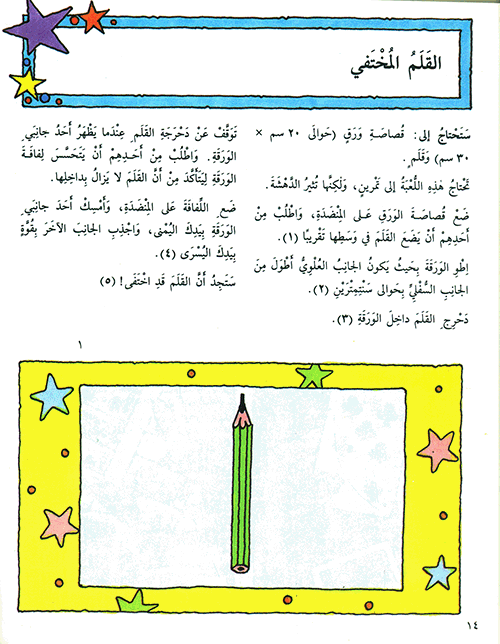 القَلَمُ المُخْتَفي
سَتَحْتاجُ إلى: قُصاصَةِ وَرَقٍ (حَوالَى ٢٠ سم ×
٣٠ سم) وَقَلَمٍ.
تَحْتاجُ هٰذِهِ اللُّعْبَةُ إلى تَمْرينٍ، وَلٰكِنَّها تُثيرُ الدَّهْشَةَ.
ضَعْ قُصاصَةَ الوَرَقِ عَلى المِنْضَدَةِ، وَاطْلُبْ مِنْ
أَحَدِهِمْ أَنْ يَضَعَ القَلَمَ في وَسَطِها تَقْريبًا (١).
اِطْوِ الوَرَقَةَ بِحَيثُ يَكونُ الجانِبُ العُلْوِيُّ أَطْوَلَ مِنَ
الجانِبِ السُّفْلِيِّ بِحَوالى سَنْتِيمِتْرَيْنِ (٢).
دَحْرِجِ القَلَمَ داخِلَ الوَرَقَةِ (٣).
تَوَقَّفْ عَنْ دَحْرَجَةِ القَلَمِ عِنْدَما يَظْهَرُ أَحَدُ جانِبَيِ
الوَرَقَةِ. وَاطْلُبْ مِنْ أَحَدِهِمْ أَنْ يَتَحَسَّسَ لِفافَةَ
الوَرَقَةِ لِيَتَأَكَّدَ مِنْ أَنَّ القَلَمَ لا يَزالُ بِداخِلِها.
ضَعِ اللِّفافَةَ عَلى المِنْضَدَةِ، وَأَمْسِكْ أَحَدَ جانِبَيِ
الوَرَقَةِ بِيَدِكَ اليُمْنى، وَاجْذِبِ الجانِبَ الآخَرَ بِقُوَّةٍ
بِيَدِكَ اليُسْرَى (٤).
سَتَجِدُ أَنَّ القَلَمَ قَدِ اخْتَفَى! (٥)
١
١٤